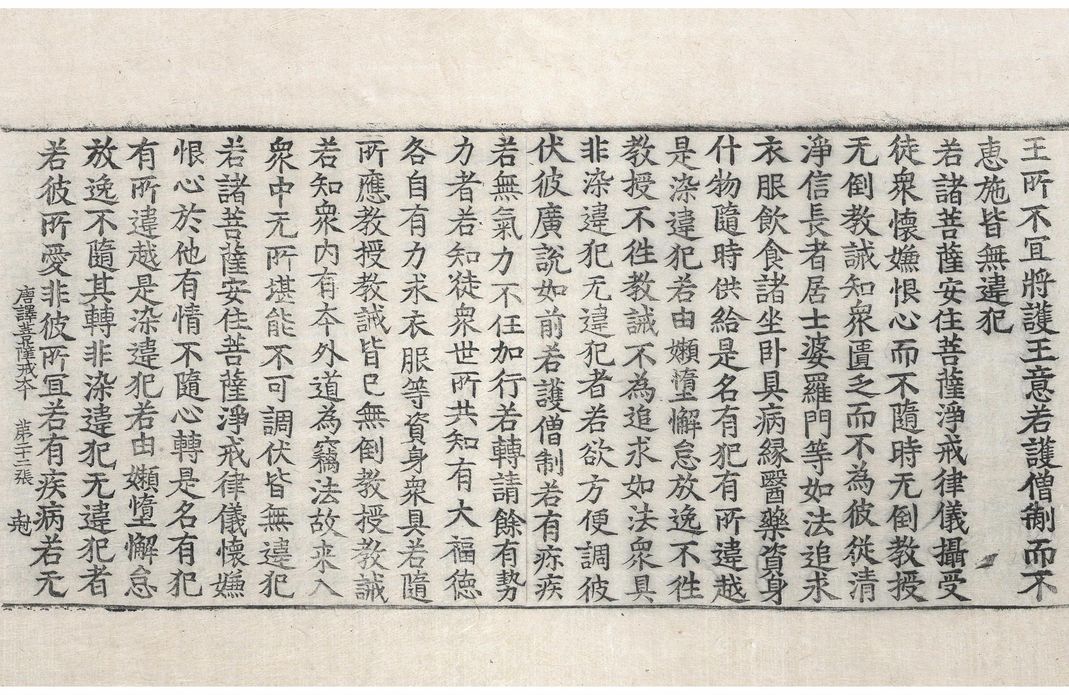 王所不宜將護王意若護僧制而不
惠施皆無違犯
若諸菩薩安住菩薩淨戒律儀攝受
徒衆懷嫌恨心而不隨時无倒教授
无倒教誡知衆匱乏而不為彼從清
淨信長者居士婆羅門等如法追求
衣服飲食諸坐卧具病縁醫藥資身
什物隨時供給是名有犯有所違越
是染違犯若由嬾墮懈怠放逸不徃
教授不徃教誡不為追求如法衆具
非染違犯无違犯者若欲方便調彼
伏彼廣說如前若護僧制若有疹疾
若無氣力不任加行若轉請餘有勢
力者若知徒衆世所共知有大福德
各自有力求衣服等資身衆具若隨
所應教授教誡皆已無倒教授教誡
若知衆内有夲外道為竊法故来入
衆中无所堪能不可調伏皆無違犯
若諸菩薩安住菩薩淨戒律儀懷嫌
恨心於他有情不隨心轉是名有犯
有所違越是染違犯若由嬾墮懈怠
放逸不隨其轉非染違犯无違犯者
若彼所愛非彼所宜若有疾病若无
唐譯菩薩戒本 第二十二張